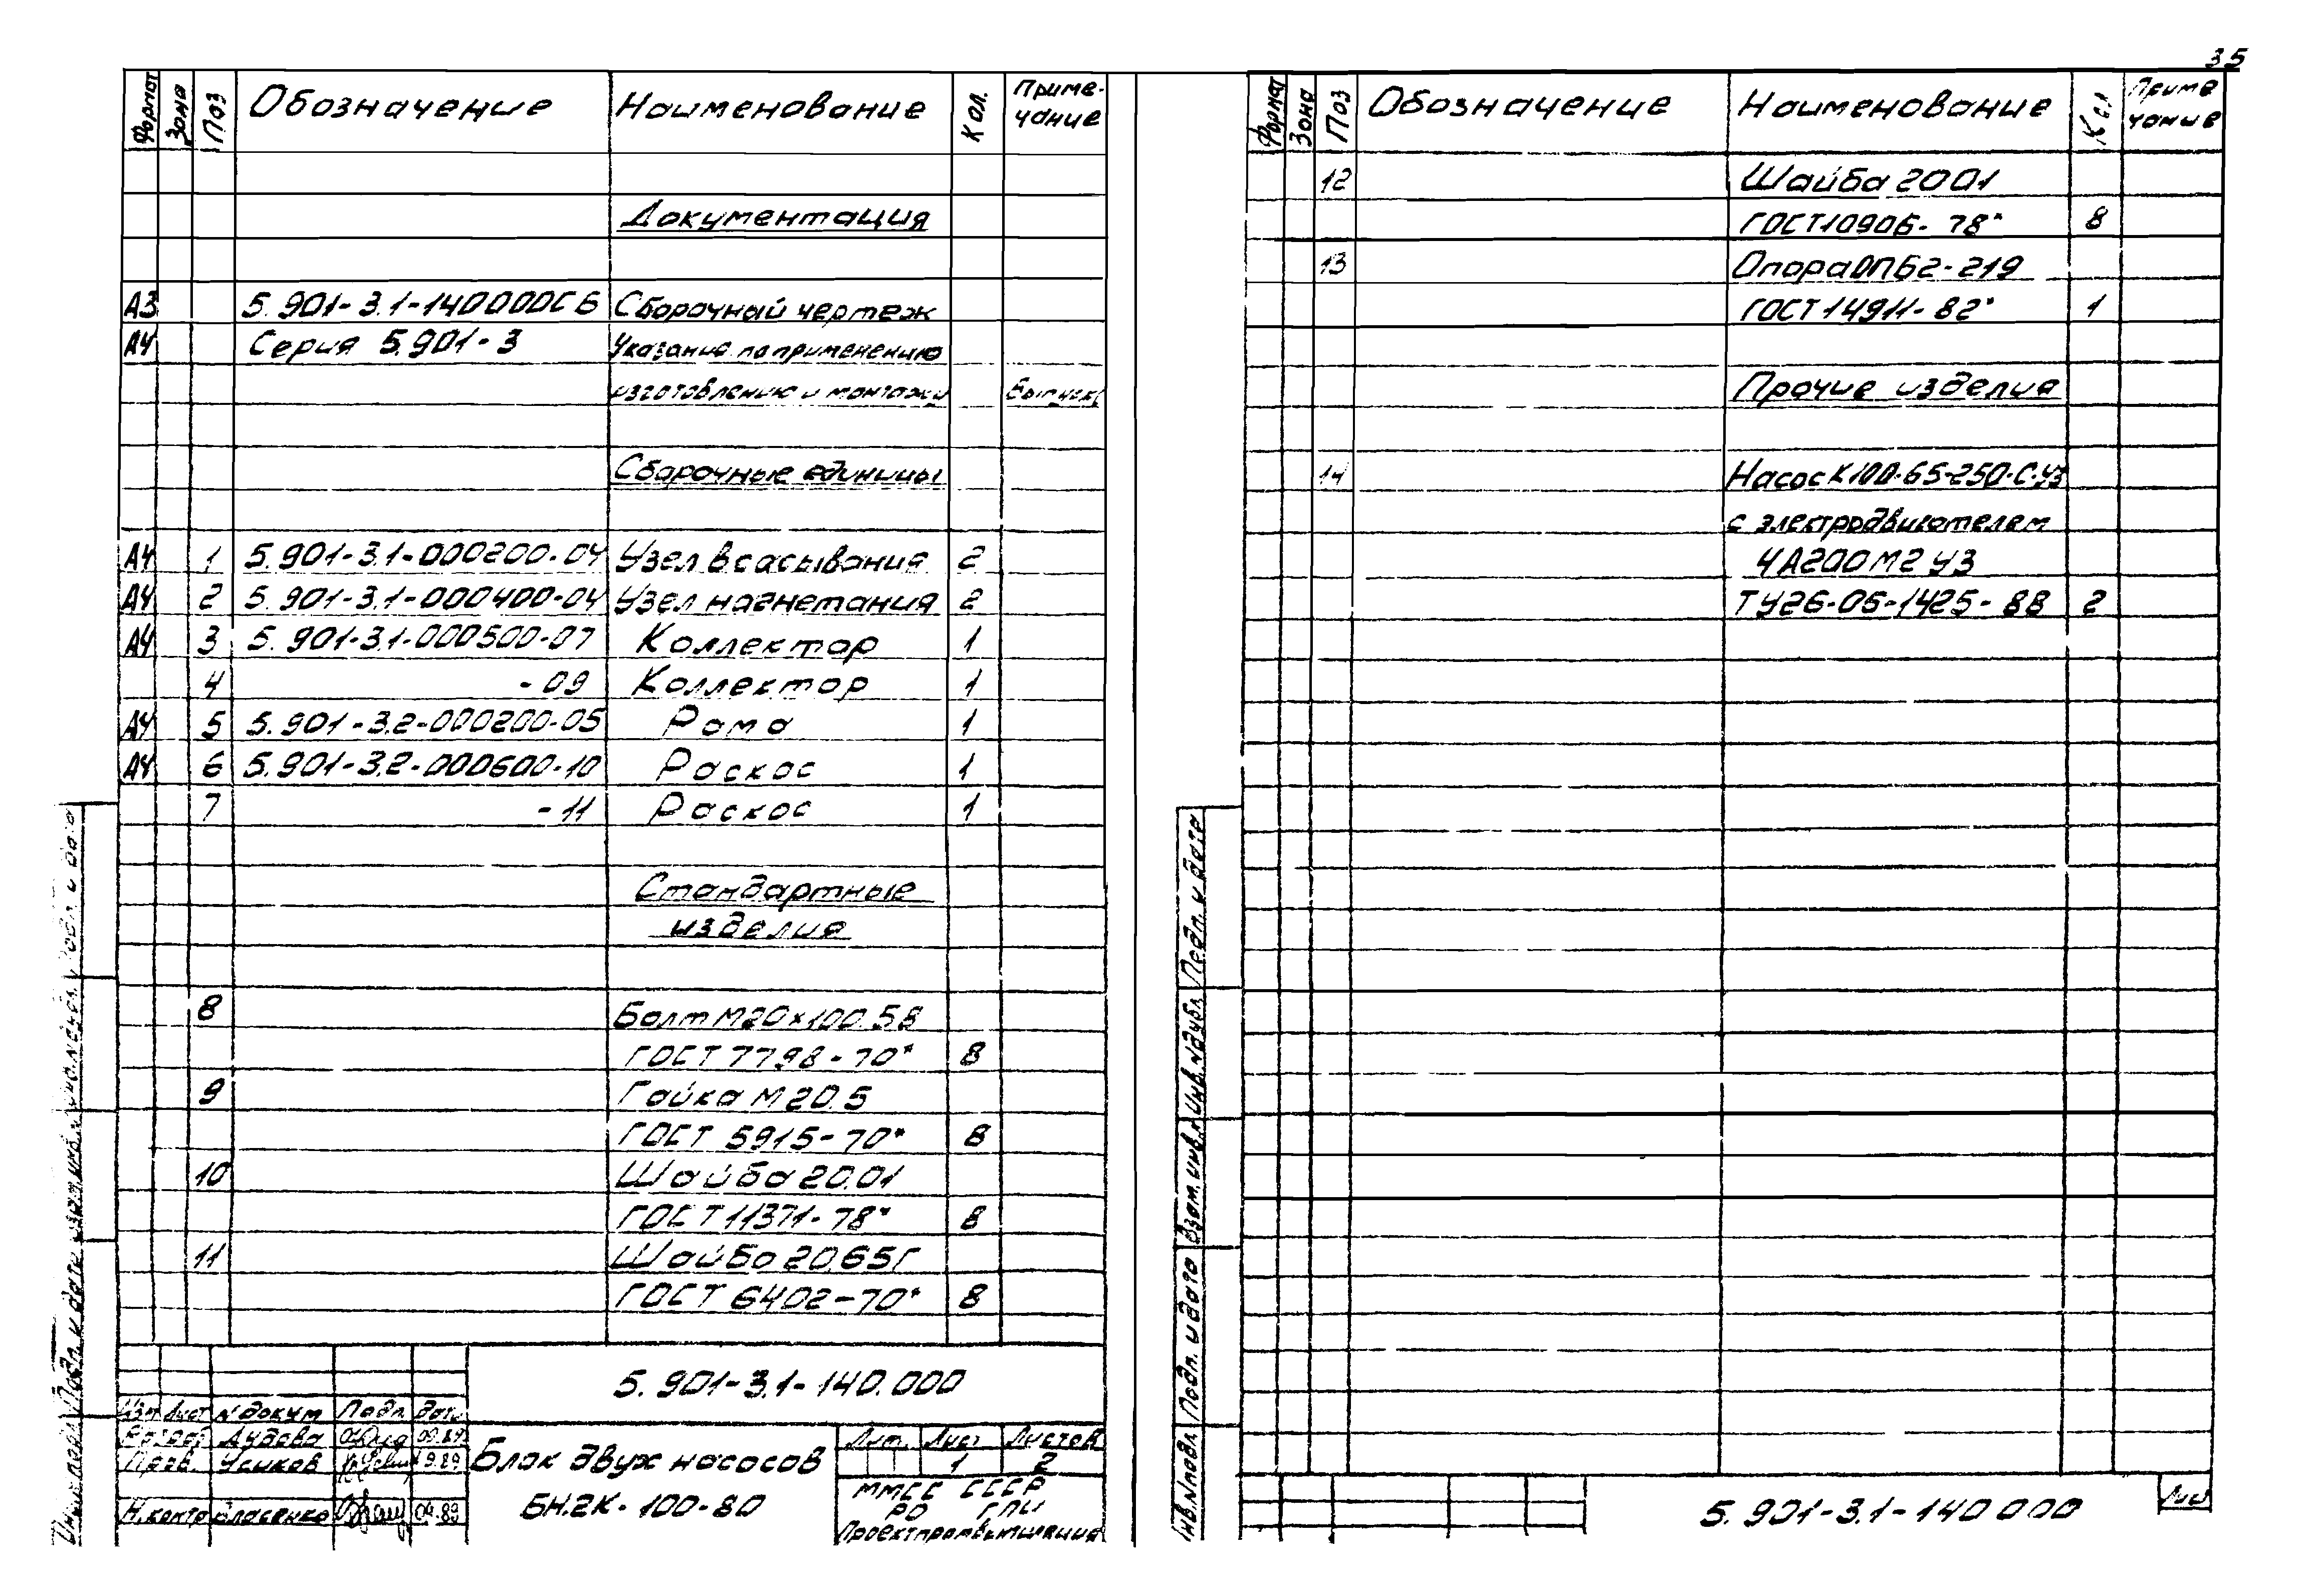 35
Формат Зона Поз Обозначение Наименование Кол. Приме-
чание
Документация
А3 5.901-3.1-140000СБ Сборочный чертеж
А4 Серия 5.901-3 Указание по применению
изготовлению и монтажу Выпуск
Сборочные единицы
А4 1 5.901-3.1-000200-04 Узел всасывания 2
А4 2 5.901-3.1-000400-04 Узел нагнетания 2
А4 3 5.901-3.1-000500-07 Коллектор 1
4 -09 Коллектор 1
А4 5 5.901-3.2-000200-05 Рама 1
А4 6 5.901-3.2-000600-10 Раскос 1
7 -11 Раскос 1
Стандартные
изделия
8 Болт М20×100.58
ГОСТ 7798-70* 8
9 Гайка М20.5
ГОСТ 5915-70* 8
10 Шайба 20.01
ГОСТ 11371-78* 8
11 Шайба 20.65Г
ГОСТ 6402-70* 8
5.901-3.1-140.000
Изм Лист № докум Подп. Дата
Разраб. Дудова 09.89
Пров. Усиков 9.89
Н.контр Власенко 09.89
Блок двух насосов
БН.2К-100-80
Лит. Лист Листов
1 2
ММСС СССР
РО ГПИ
Проектпромвентиляция
Формат Зона Поз Обозначение Наименование Кол Приме
чание
12 Шайба 2001
ГОСТ10906-78*
8
13 Опора ОПБ2-219
ГОСТ 14911-82* 1
Прочие изделия
14 Насос К100-65-250-С-У3
с электродвигателем
4А200М2У3
ТУ26-06-1425-88 2
Инв.№подл. Подп. и дата Взам.инв.№ Инв.№дубл. Подп. и дата
5.901-3.1-140000
Лист